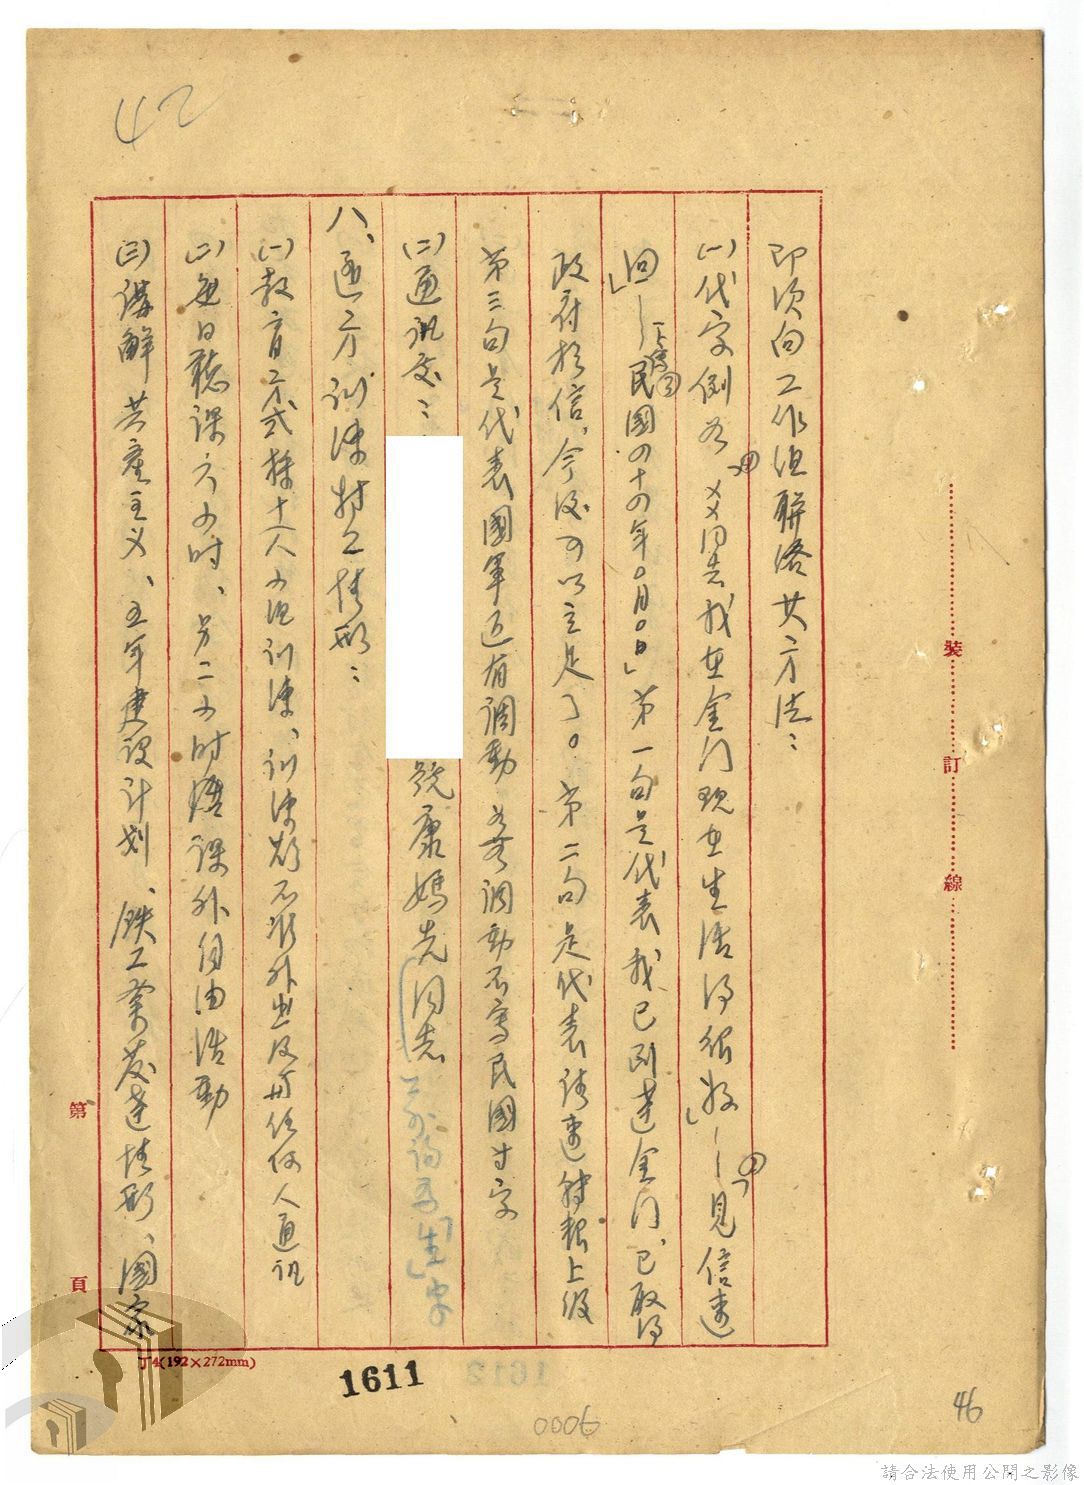 42
即須向工作組聯絡其方法：
(一)代字例為「××同志我在金门現在生活得很好」－「見信速
回」－「民國四十四年○月○日」第一句是代表我已到達金门、已取得
政府相信，今後可以立足了。第二句是代表請速轉報上級
第三句是代表國軍近有調動 若無調動不寫民國廿字
(二)通訊處：
號康媽先同志
八、匪方訓練特工情形：
(一)教育方式採十人小组训練、训練期不准外出及與任何人通訊
(二)每日聽課六小时、另二小时溫課外自由活動
(三)講解共產主义、五年建设计划、鉄工業發達情形、國家
裝
訂
線
第
頁
丁4(192×272mm)
1611
0006
46
請合法使用公開之影像